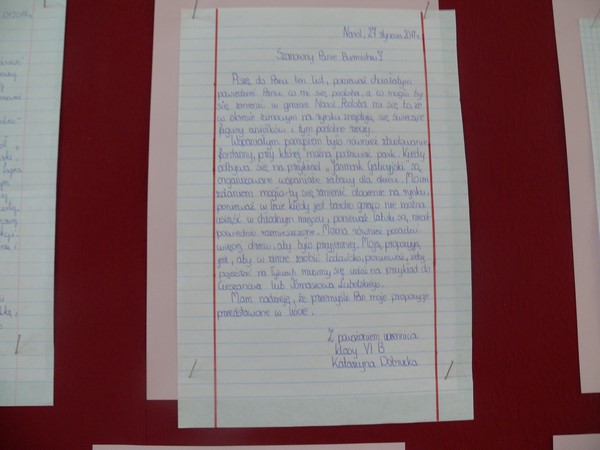 Narol, 27 stycznia 2017r.
Szanowny Panie Burmistrzu!
Piszę do Pana ten list, ponieważ chciałabym
powiedzieć Panu co mi się podoba, a co mogło by
się zmienić w gminie Narol. Podoba mi się to, że
w okresie zimowym na rynku znajdują się świecące
figury aniołków i tym podobne rzeczy.
Wspaniałym pomysłem było również zbudowanie
fontanny, przy której można podziwiać park. Kiedy
odbywa się na przykład "Jarmark Galicyjski" są
organizowane wspaniałe zabawy dla dzieci. Moim
zdaniem mogło-by się zmienić otoczenie na rynku,
ponieważ w lecie kiedy jest bardzo gorąco nie można
usiąść w chłodnym miejscu, ponieważ ławki są nieod-
powiednio rozmieszczone. Można również posadzić
więcej drzew, aby było przyjemniej. Moją propozycją
jest, aby w zimie zrobić lodowisko, ponieważ, żeby
pojeździć na łyżwach musimy się udać na przykład do
Cieszanowa lub Tomaszowa Lubelskiego.
Mam nadzieję, że przemyśli Pan moje propozycje
przedstawione w liście.
Z poważaniem uczennica
klasy VI B
Katarzyna